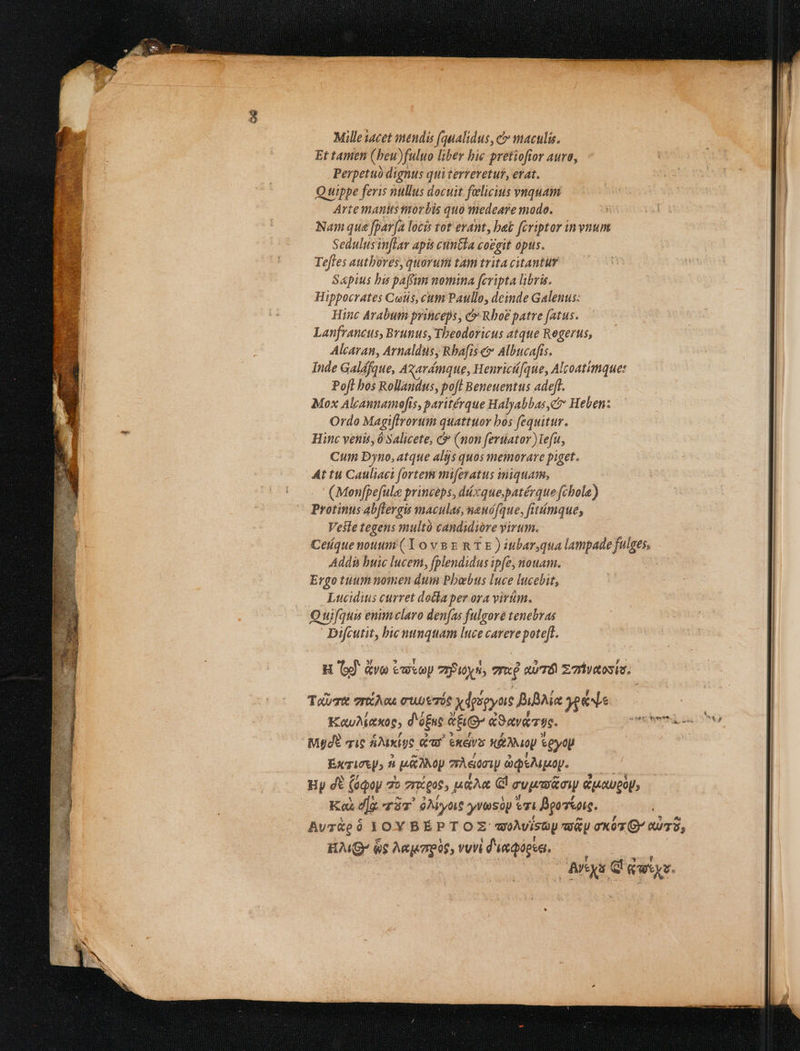 8
Mille iacet mendis ſqualidus, & maculis.
Et tamen (heu) fuluo liber hic pretioſior auro,
Perpetuò dignus qui terreretur, erat.
Quippe feris nullus docuit fœlicius vnquam
Arte manus morbis quo medeare modo.
Nam quæ ſparſa locis tot erant, hæc ſcriptor in vnum
Sedulus inſtar apis cuncta coëgit opus.
Teſtes authores, quorum tam trita citantur
Sæpius his paſſim nomina ſcripta libris.
Hippocrates Coüs, cum Paullo, deinde Galenus:
Hinc Arabum princeps, & Rhoë patre ſatus.
Lanfrancus, Brunus, Theodoricus atque Rogerus,
Alcaran, Arnaldus, Rhaſis & Albucaſis.
Inde Galáſque, Azarámque, Henricúſque, Alcoatímque:
Poſt hos Rollandus, poſt Beneuentus adeſt.
Mox Alcannamoſis, paritérque Halyabbas, & Heben:
Ordo Magiſtrorum quattuor hos ſequitur.
Hinc venis, ô Salicete, & (non ſeruator) Ieſu,
Cum Dyno, atque alijs quos memorare piget.
At tu Cauliaci ſortem miſeratus iniquam,
(Monſpeſulæ princeps, dúxque, patérque ſcholæ)
Protinus abſtergis maculas, næuóſque, ſitúmque,
Veſte tegens multò candidiore virum.
Ceúque nouum (IOVBERTE) iubar, qua lampade fulges,
Addis huic lucem, ſplendidus ipſe, nouam.
Ergo tuum nomen dum Phœbus luce lucebit,
Lucidius curret docta per ora virûm.
Quiſquis enim claro denſas fulgore tenebras
Diſcutit, hic nunquam luce carere poteſt.
Η ἄνω ἐπέων
Ταῦτα πάλαι βιβλία γράψε
Καυλίακος, δόξης ἄξιος ἀθανάτης.
Μηδέ τις ἡλικίης ἀπ' ἐκείνου κάλλιον ἔργον
Εκτισεν, ἢ μᾶλλον πλείοσιν ὠφέλιμον.
Ην δὲ ζόφον τὸ πάρος, μάλα καὶ συμπᾶσιν ἀμαυρὸν,
Καὶ διὰ τοῦτ' ὀλίγοις γνωστὸν ἔτι βροτέοις.
Αυτὰρ ὁ ΙΟΥΒΕΡΤΟΣ πολυίστωρ πᾶν σκότος αὐτοῦ,
Ηλιος ὣς λαμπρὸς, νυνὶ διαφορέει.
Ανέχου καὶ ἀπέχου.